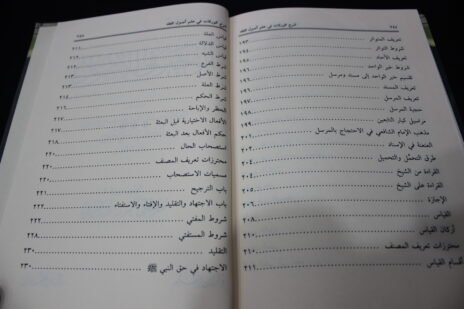 ٢٥٤ شرح الورقات في علم أصول الفقه
تعريف المتواتر ١٩٣
شروط التواتر
تعريف الآحاد
شروط خبر الواحد
تقسيم خبر الواحد إلى مسند ومرسل ١٩٦
تعريف المسند ١٩٦
تعريف المرسل
حجية المرسل
مراسيل كبار التابعين ١٩٩
مذهب الإمام الشافعي في الاحتجاج بالمرسل
العنعنة في الإسناد
طرق التحمُّل والتحميل ٢٠٤
القراءة من الشيخ
القراءة على الشيخ ٢٠٥
الإجازة ٢٠٦
القياس
أركان القياس
محترزات تعريف المصنف ٢١٠
أقسام القياس ٢١١
شرح الورقات في علم أصول الفقه
قياس العلة
قياس الدلالة ٢١١
قياس الشبه
شرط الفرع
شرط الأصل
شرط العلة
شرط الحكم
الحظر والإباحة ٢١٦
الأفعال الاختيارية قبل البعثة ٢١٧
حكم الأفعال بعد البعثة ٢١٧
استصحاب الحال
محترزات تعريف المصنف ٢٢٠
مسميات الاستصحاب
باب الترجيح ٢٢١
باب الاجتهاد والتقليد والإفتاء والاستفتاء
شروط المفتي ٢٢٢
شروط المستفتي ٢٢٨
التقليد ٢٣٠
الاجتهاد في حق النبي ﷺ ٢٣٠